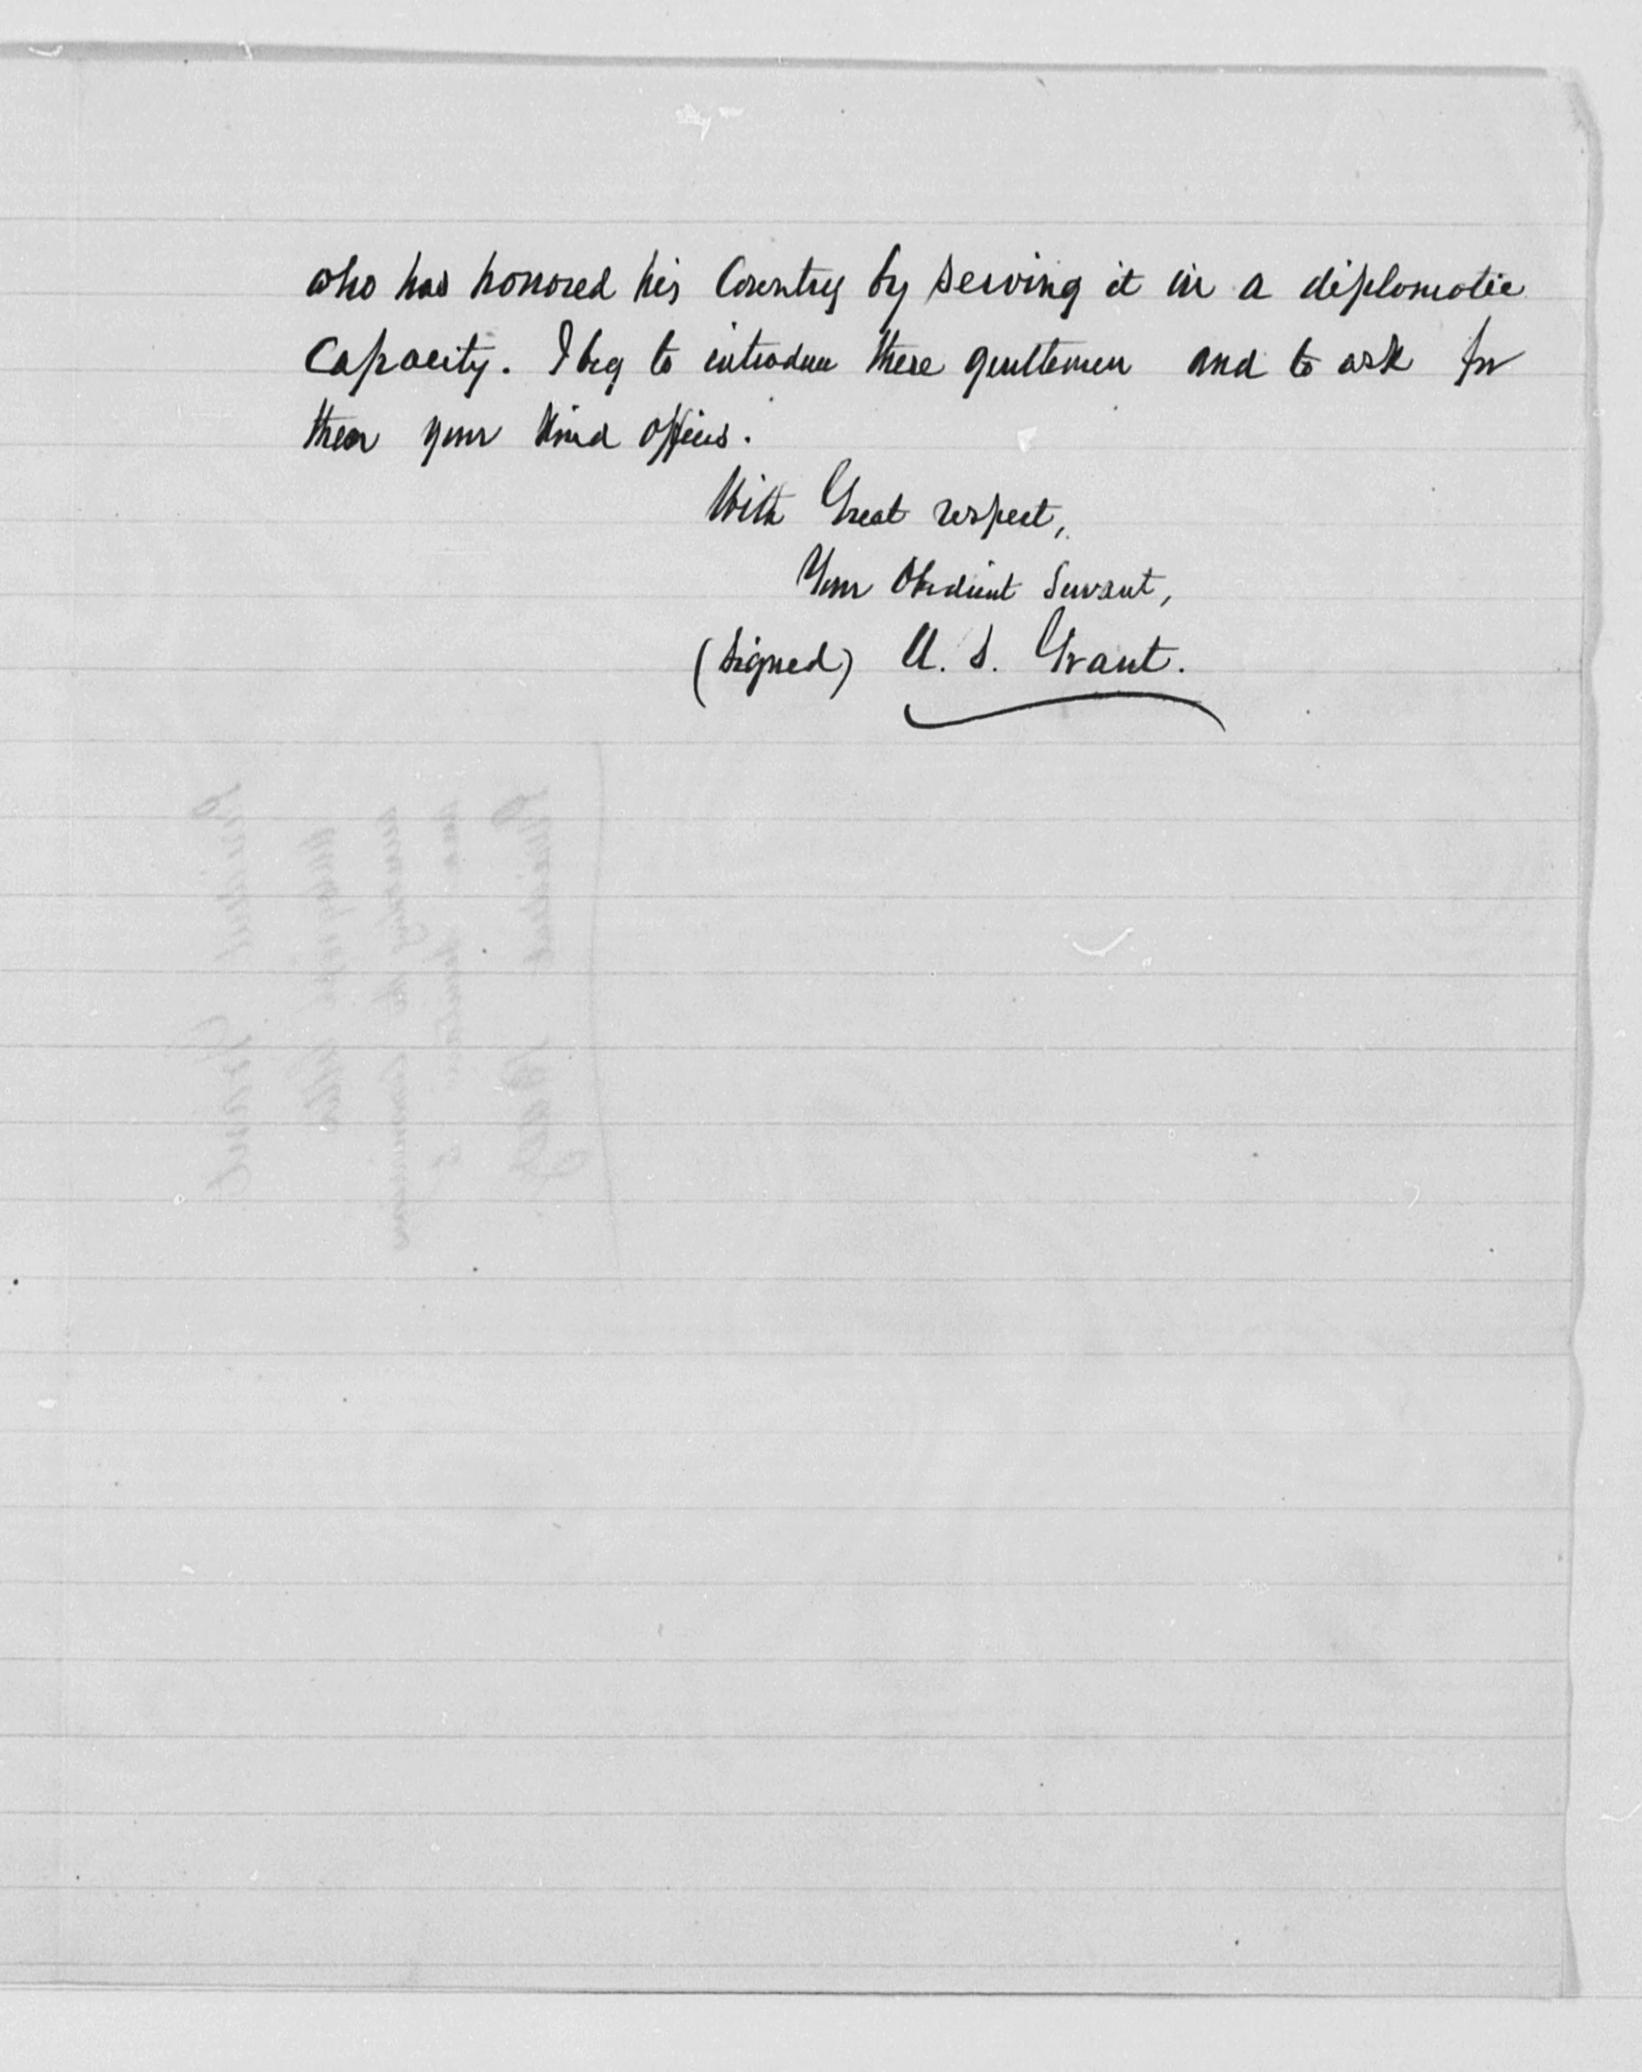 who has honored his Country by serving it in a diplomatic
Capacity. I beg to introduce these gentlemen and to ask for
them your kind offices.
With Great respect,
Your Obedient Servant,
(Signed) U. S. Grant.